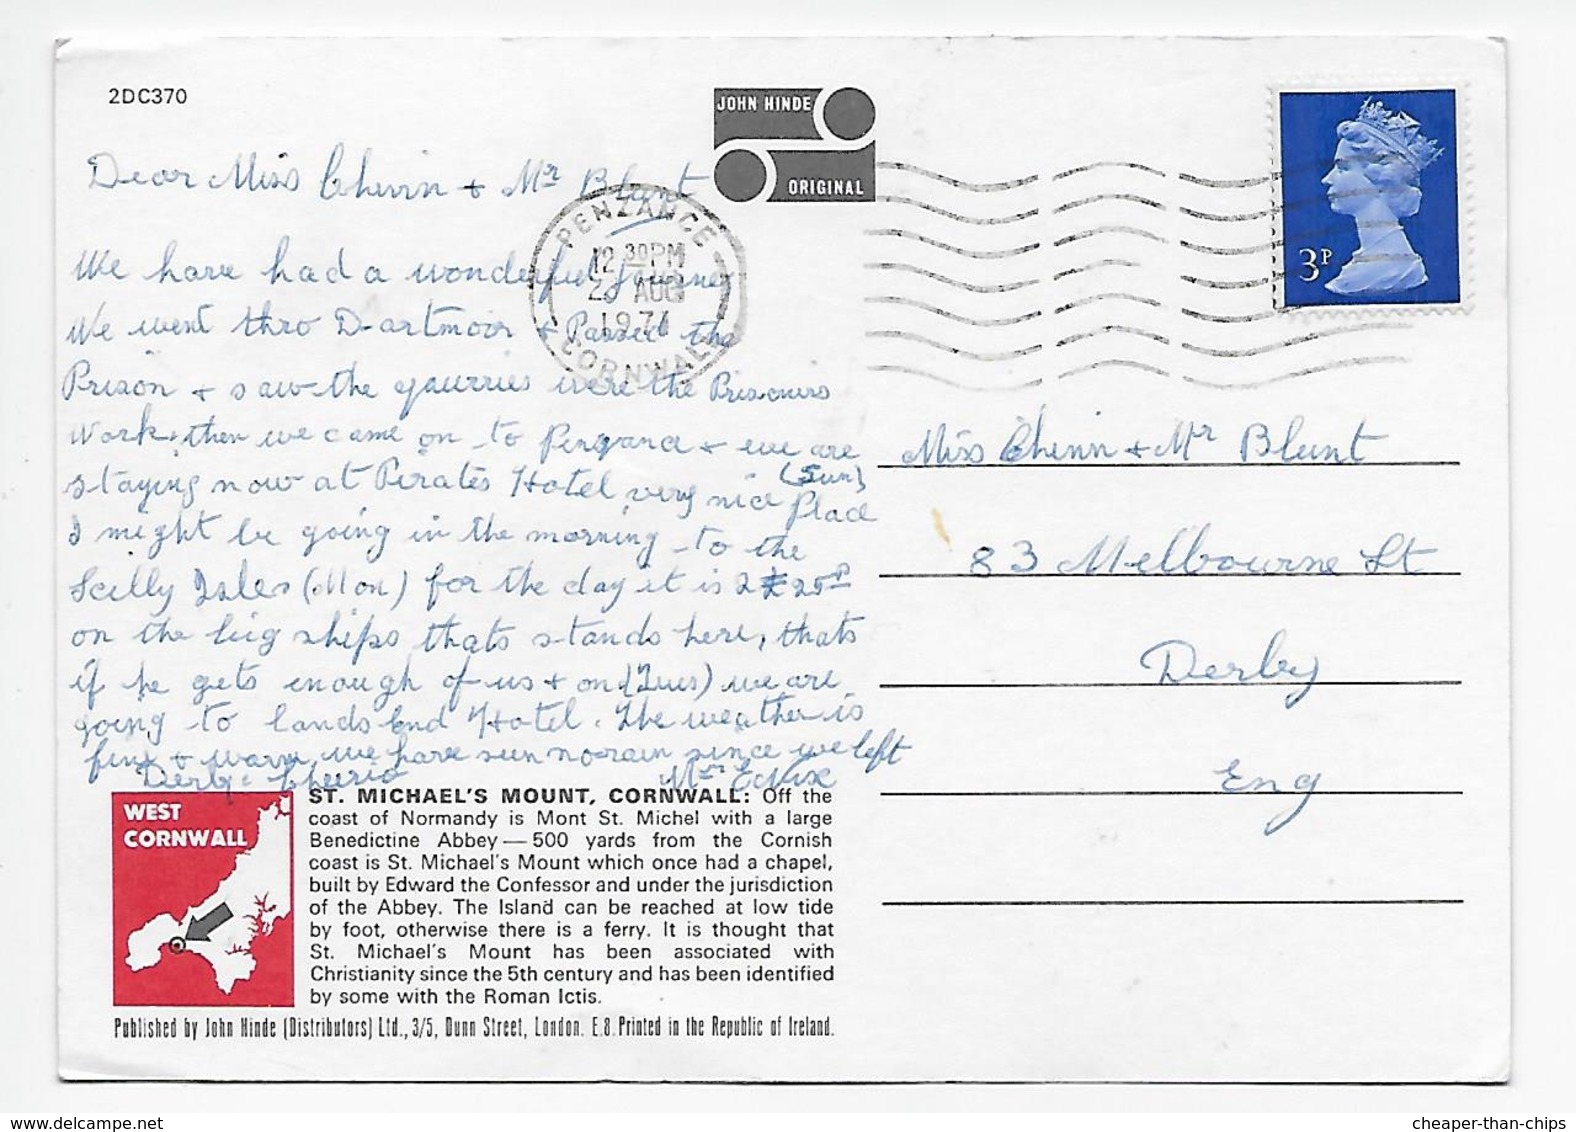 2DC370
JOHN HINDE
ORIGINAL
3P
PENZANCE
12 30PM
AUG
197
CORNWALL
Dear Miss Chinn + Mr Blunt
We have had a wonderful Journey
We went thro Dartmoor + Passed the
Prison + saw the qaurries were the Prisoners
Work, then we came on to + we are
staying now at Pirates Hotel very nice Place (Sun)
I might be going in the morning to the
Scilly Isles (Mon) for the day it is 2£25P
on the big ships thats stands here, thats
if he gets enough of us + on (Tues) we are
going to Lands End Hotel. The weather is
fine + warm we have seen no rain since we left
Derby. Cheerio Mrs E
Miss Chinn + Mr Blunt
83 Melbourne St
Derby
Eng
WEST
CORNWALL
ST. MICHAEL'S MOUNT, CORNWALL: Off the
coast of Normandy is Mont St. Michel with a large
Benedictine Abbey — 500 yards from the Cornish
coast is St. Michael's Mount which once had a chapel,
built by Edward the Confessor and under the jurisdiction
of the Abbey. The Island can be reached at low tide
by foot, otherwise there is a ferry. It is thought that
St. Michael's Mount has been associated with
Christianity since the 5th century and has been identified
by some with the Roman Ictis.
Published by John Hinde (Distributors) Ltd., 3/5, Dunn Street, London. E.8. Printed in the Republic of Ireland.
cheaper-than-chips